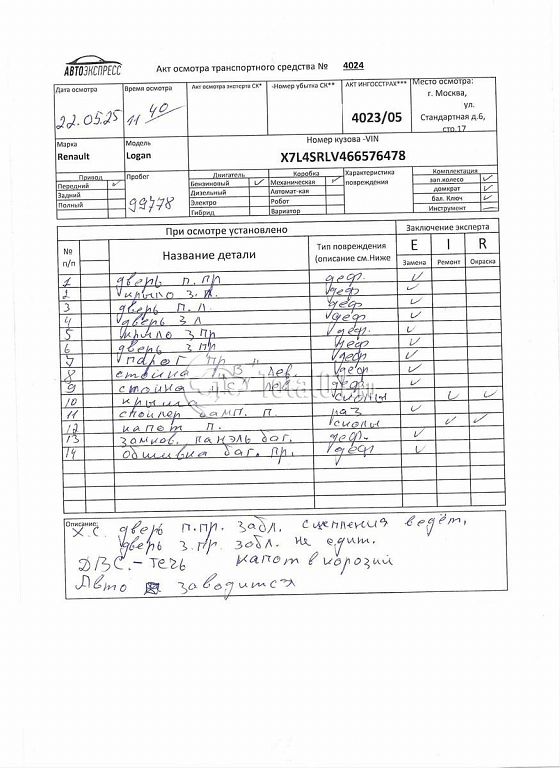 АВТОЭКСПРЕСС
Акт осмотра транспортного средства № 4024
Дата осмотра Время осмотра Акт осмотра эксперта СК* -Номер убытка СК** АКТ ИНГОССТРАХ*** Место осмотра:
22.05.25 11 40 4023/05 г. Москва, ул. Стандартная д.6, стр.17
Марка Модель Номер кузова -VIN
Renault Logan X7L4SRLV466576478
Привод Пробег Двигатель Коробка Характеристика повреждения Комплектация
Передний ✓ 99778 Бензиновый ✓ Механическая ✓ зап.колесо ✓
Задний Дизельный Автомат-кая домкрат ✓
Полный Электро Робот бал. Ключ ✓
Гибрид Вариатор Инструмент —
При осмотре установлено Заключение эксперта
№ п/п Название детали Тип повреждения (описание см.Ниже E I R
Замена Ремонт Окраска
1 дверь п. пр деф. ✓
2 крыло з. л. деф ✓
3 дверь п. л. деф ✓
4 дверь з л деф ✓
5 крыло з пр деф. ✓
6 дверь з пр деф ✓
7 парог пр деф ✓
8 стойка В лев. деф ✓
9 стойка лев. деф ✓
10 крыша сколы ✓ ✓
11 спойлер бамп. п. раз ✓
12 капот п. сколы ✓ ✓
13 замков. панэль баг. деф. ✓
14 обшивка баг. пр. деф ✓
Описание:
Х.С. дверь п.пр. забл. сцепления ведёт.
дверь з.пр. забл. не едит.
ДВС.-течь капот в корозий
Авто заводится